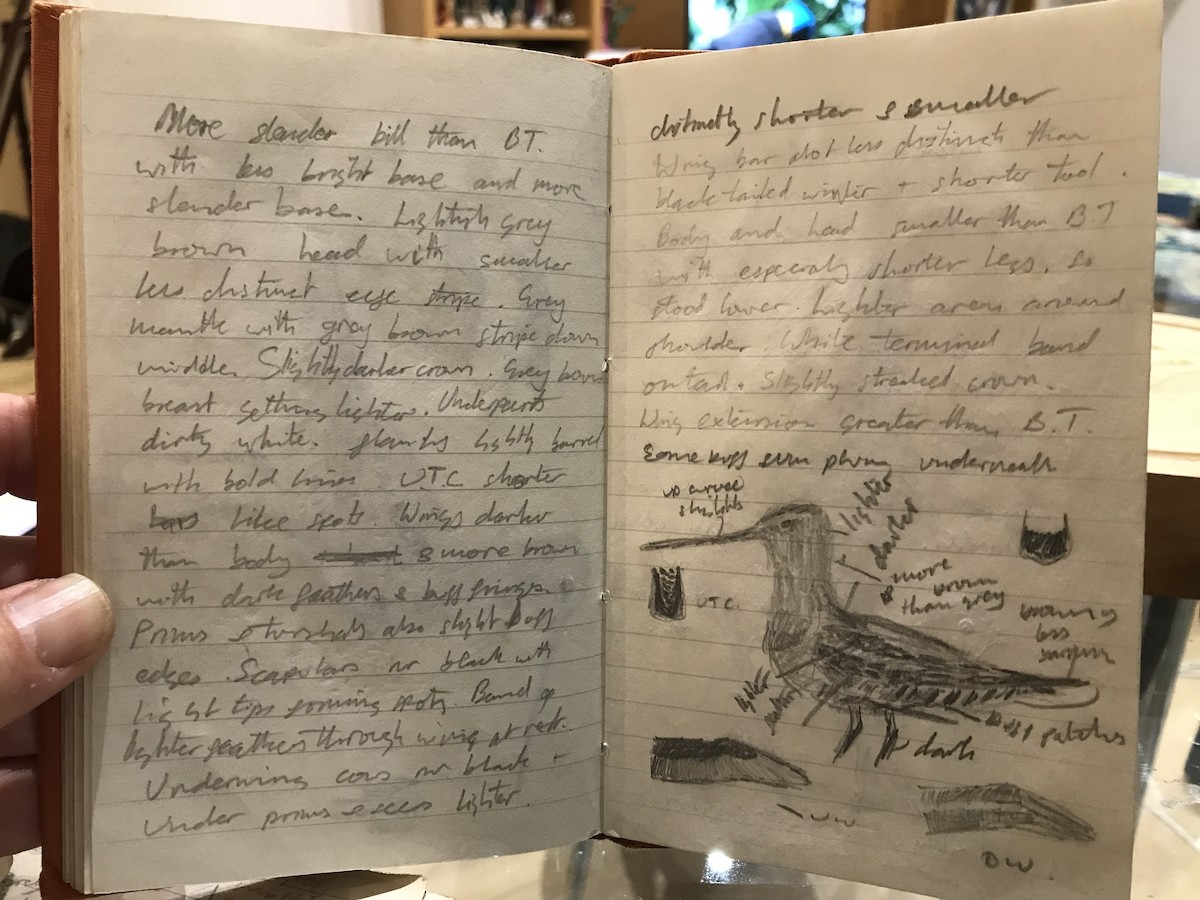 More slender bill than B.T.
with less bright base and more
slender base. Lightish grey
brown head with smaller
less distinct eye stripe. Grey
mantle with grey brown stripe down
middle. Slightly darker crown. Grey brown
breast getting lighter. Underparts
dirty white. flanks lightly barred
with bold lines. U.T.C shorter
bars like spots. Wings darker
than body & more brown
with dark feathers & buff fringes.
Prims & tertials also slight buff
edges. Scapulars nr black with
light tips forming spots. Band of
lighter feathers through wing at rest.
Underwing covs nr black +
under prims & secs lighter.
distinctly shorter & smaller
Wing bar alot less distinct than
black tailed winter + shorter too.
Body and head smaller than B.T
with especialy shorter legs, so
stood lower. Lighter area around
shoulder. White terminal band
on tail. Slightly streaked crown.
Wing extension greater than B.T.
Some buff sum plumg underneath
up curved
slightly
lighter
darker
more
brown
than grey
U.T.C.
less
lighter
buff patches
dark
UW
DW.